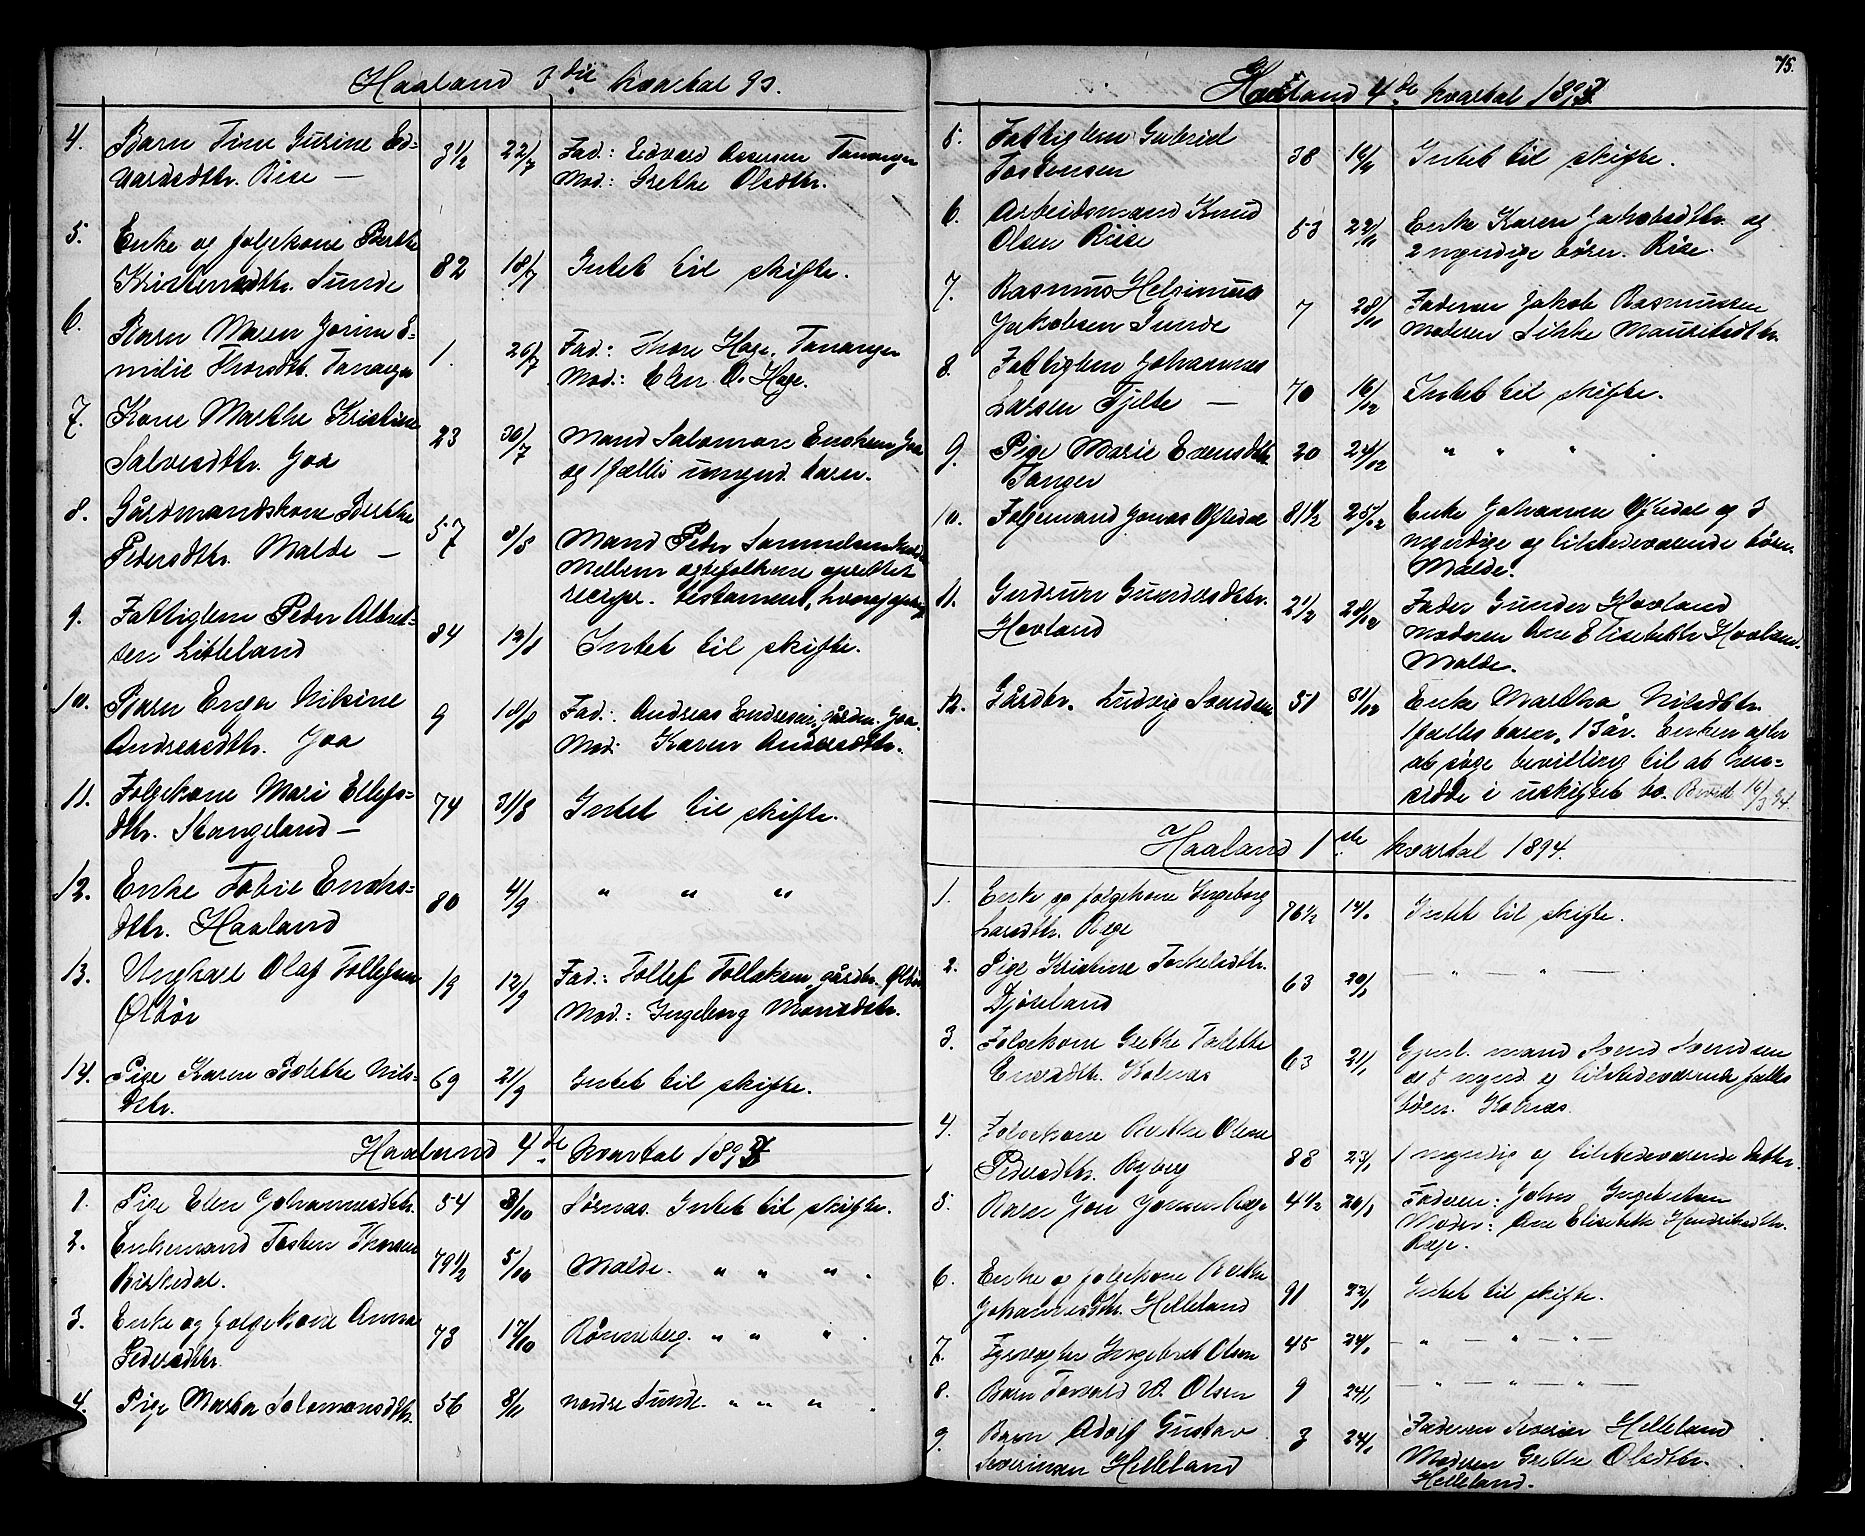 Haaland 3die kvartal 93.
4. Barn Tine Gurine Ed-
vardsdtr. Risa — 3 1/2 22/7 Fad.: Edvard Assersen Tananger
Mod.: Grethe Olsdtr.
5. Enke og folgekone Berthe
Kristensdtr. Sunde 82 18/7 Intet til skifte.
6. Barn Maren Jorine E-
milie Thorsdtr. Tananger 1. 26/7 Fad.: Thore Hage. Tananger
Mod.: Elen O. Hage.
7. Kone Marthe Kristine
Salvesdtr. Joa 23 30/7 Mand Salomon Enoksen Joa
og 1 fælles umynd. barn.
8. Gårdmandskone Berthe
Pedersdtr. Malde — 57 8/8 Mand Peder Sammelsen
Mellem ægtefolkene oprettet
recipr. testament,
9. Fattiglem Peder Albret-
sen Litleland 84 12/8 Intet til skifte.
10. Barn Enga Nilsine
Andreasdtr. Joa 9 18/8 Fad.: Andreas Endresen, gårdm. Joa.
Mod: Karen Andersdtr.
11. Folgekone Mari Ellefs-
dtr. Stangeland — 74 31/8 Intet til skifte.
12. Enke Tobie Enoks-
dtr. Haaland 80 4/9 " " "
13. Ungkarl Olaf Tollefsen
Ølbør 19 12/9 Fad.: Tollef Tollaksen, gårdbr. Ølbør
Mod.: Ingeborg Monsdtr.
14. Pige Karen Bolette Nils-
dtr. 69 21/9 Intet til skifte.
Haaland 4de kvartal 1893
1. Pige Elen Johannesdtr. 54 3/10 Sørnæs. Intet til skifte.
2. Enkemand Tosten Thorsen
Birkedal. 79 1/2 5/10 Malde. " " " .
3. Enke og folgekone Anna
Pedersdtr. 73 17/10 Rønneberg. " " " .
4. Pige Marta Salomonsdtr. 56 8/11 nordre Sunde. " " " .
75.
Haaland 4de kvartal 1893
5. Fattiglem Gabriel
Tostensen 38 14/11 Intet til skifte.
6. Arbeidsmand Knud
Olsen Riise 53 22/11 Enke Karen Jakobsdtr. og
2 myndige børn. Risa.
7. Rasmus Helsimus
Jakobsen Sunde 7 28/11 Faderen Jakob Rasmussen
Moderen Sikke Mauritsdtr.
8. Fattiglem Johannes
Larsen Tjelte — 70 16/12 Intet til skifte.
9. Pige Marie Evensdtr.
Tanger 20 24/12 " " " .
10. Folgemand Jonas Oftedal 81 1/2 25/12 Enke Johanne Oftedal og 3
myndige og tilstedeværende børn.
Malde.
11. Gudrun Gundersdtr.
Hovland 2 1/2 28/12 Fader Gunder Hovland
moderen Ane Elisabeth Hovland.
Malde.
12. Gårdbr. Ludvig Svendsen 51 31/12 Enke Martha Nilsdtr.
1 fælles barn, 13 år. Enken agter
at søge bevilling til at hen-
sidde i uskiftet bo. Bevill. 14/3 94.
Haaland 1ste kvartal 1894.
1. Enke og folgekone Ingeborg
Larsdtr. Rege 76 1/2 14/1 Intet til skifte.
2. Pige Kristine Torkelsdtr.
Djøseland 63 20/1 — " — " —
3. Folgekone Grethe Tolette
Enoksdtr. Kolnæs 63 21/1 Gjenl. mand Svend Svendsen
og 5 mynd. og tilstedeværende fælles
børn. Kolnæs.
4. Folgekone Berthe Olene
Pedersdtr. Byberg 88 23/1 1 myndig og tilstedeværende datter.
5. Barn Jon Jonsen Rege 4 1/2 20/1 Faderen: John Ingebretsen
Moder: Ane Elisabeth Henriksdtr.
Rege.
6. Enke og folgekone Berthe
Johannesdtr. Helleland 91 22/1 Intet til skifte.
7. Fyrvogter Ingebret Olsen 45 24/1 — " — " — " —
8. Barn Torvald W. Olsen 9 24/1 — " — " — " —
9. Barn Adolf Gustav
Severinsen Helleland 3 24/1 Faderen Severin Helleland
Moderen Grethe Olsdtr.
Helleland.